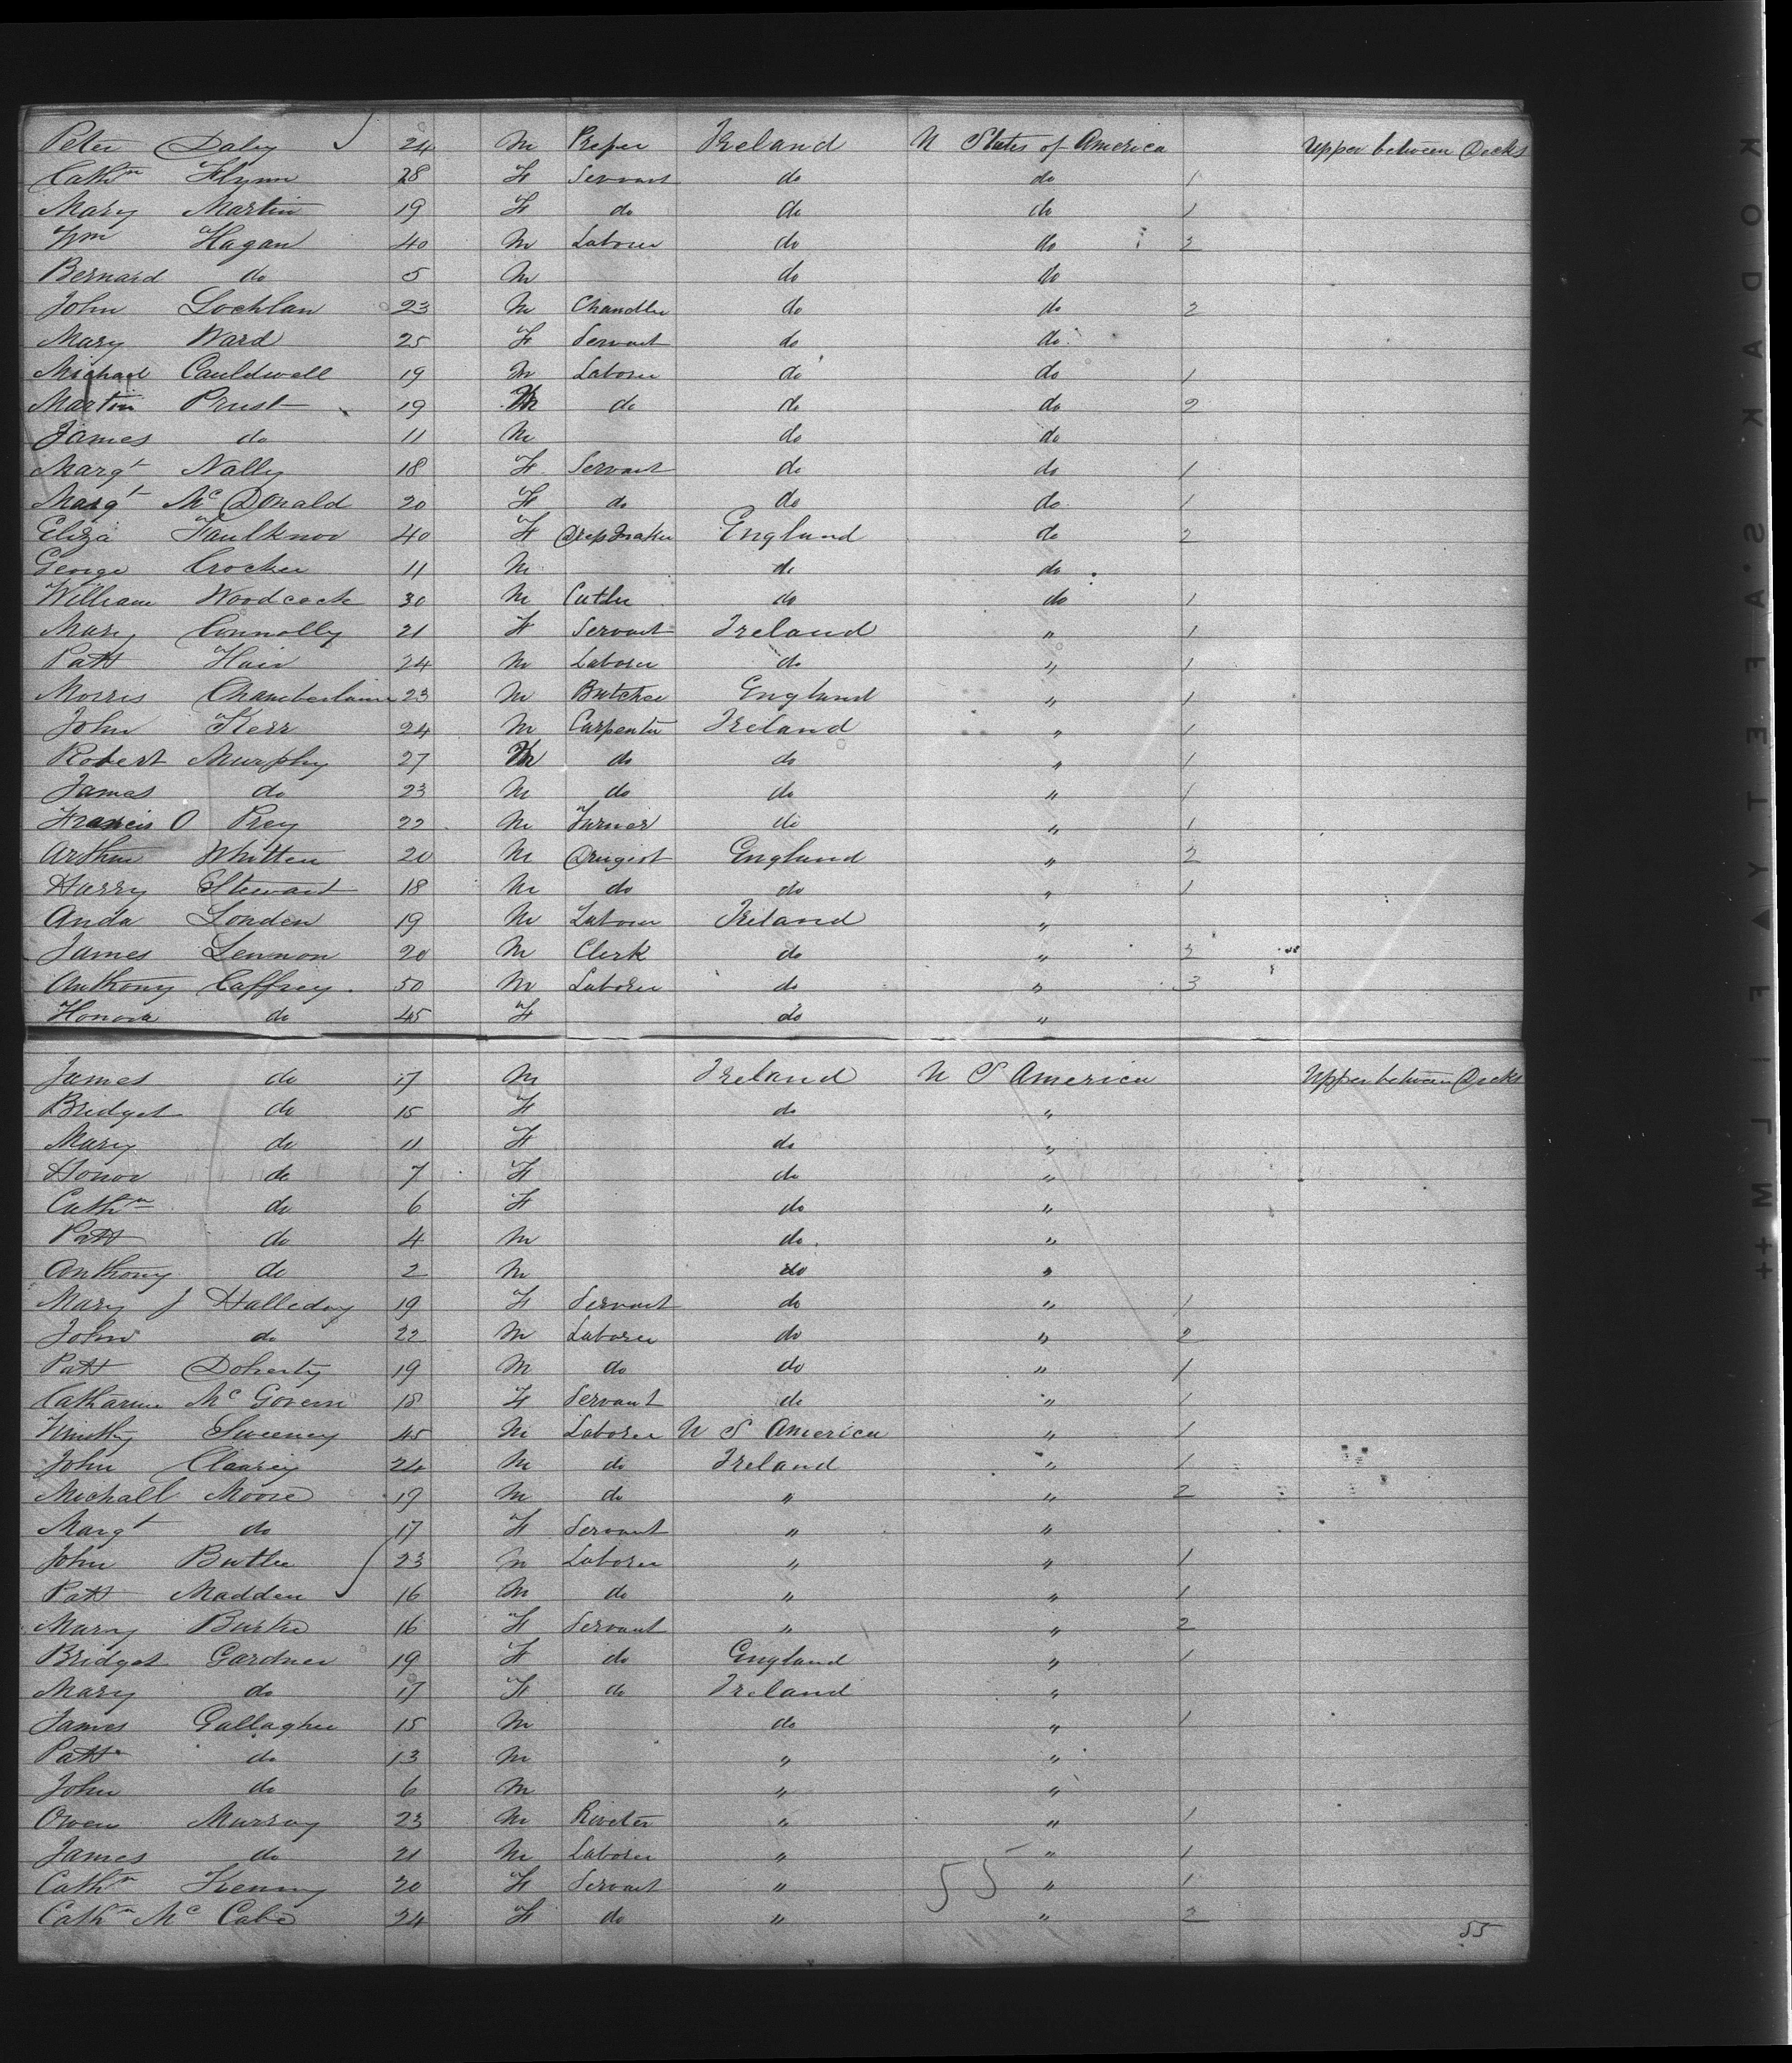 Peter Daly 24 M Presser Ireland U States of America Upper between Decks
Cathn Flynn 28 F Servant do do 1
Mary Martin 19 F do do do 1
Wm Hagan 40 M Laborer do do 2
Bernard do 5 M do do
John Lochlan 23 M Chandler do do 2
Mary Ward 25 F Servant do do
Michael Cauldwell 19 M Laborer do do 1
Martin Prust 19 M do do do 2
James do 11 M do do
Margt Nally 18 F Servant do do 1
Margt Mc Donald 20 F do do do 1
Eliza Faulknor 40 F Dressmaker England do 2
George Crocker 11 M do do
William Woodcock 30 M Cutler do do 1
Mary Connolly 21 F Servant Ireland " 1
Patt Hair 24 M Laborer do " 1
Morris Chamberlaine 23 M Butcher England " 1
John Kerr 24 M Carpenter Ireland " 1
Robert Murphy 27 M do do " 1
James do 23 M do do " 1
Francis O Prey 22 M Turner do " 1
Arthur Whitten 20 M Drugist England " 2
Harry Stewart 18 M do do " 1
Anda Londen 19 M Laborer Ireland "
James Lennon 20 M Clerk do " 3
Anthony Caffrey 50 M Laborer do " 3
Honora do 45 F do "
James do 17 M Ireland U S America Upper between Decks
Bridget do 15 F do "
Mary do 11 F do "
Honor do 7 F do "
Cathn do 6 F do "
Patt do 4 M do "
Anthony do 2 M do "
Mary J Halleday 19 F Servant do " 1
John do 22 M Laborer do " 2
Patt Doherty 19 M do do " 1
Catharine Mc Govern 18 F Servant do " 1
Timothy Sweeney 45 M Laborer U S America " 1
John Clancey 24 M do Ireland " 1
Michall Moore 19 M do " " 2
Margt do 17 F Servant " "
John Butler 23 M Laborer " " 1
Patt Madden 16 M do " " 1
Mary Burke 16 F Servant " " 2
Bridget Gardner 19 F do England " 1
Mary do 17 F do Ireland "
James Gallagher 15 M do " 1
Patt do 13 M " "
John do 6 M " "
Owen Murray 23 M Riveter " " 1
James do 21 M Laborer " " 1
Cathn Kenny 20 F Servant " " 1
Cathn Mc Cabe 24 F do " " 2
55
55
KODAK S.A.FETY FILM